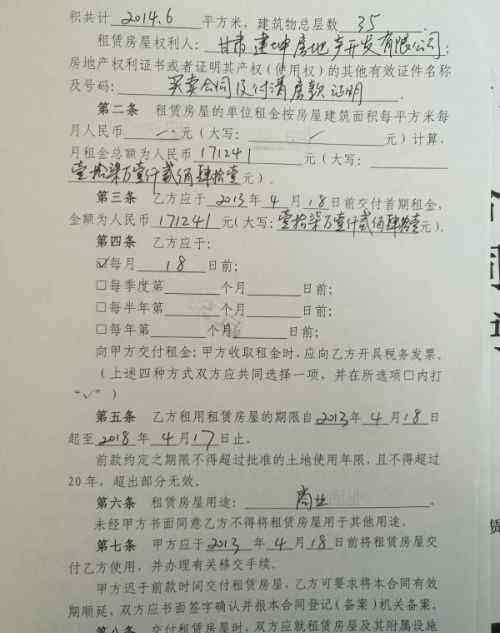 积共计 2014.6 平方米，建筑物总层数 35 .
租赁房屋权利人：甘肃建坤房地产开发有限公司；
房地产权利证书或者证明其产权（使用权）的其他有效证件名称
及号码：买卖合同及付清房款证明 .
第二条 租赁房屋的单位租金按房屋建筑面积每平方米每
月人民币 元（大写： 元）计算，
月租金总额为人民币 171241 元（大写：
壹拾柒万壹仟贰佰肆拾壹元）.
第三条 乙方应于 2013 年 4 月 18 日前交付首期租金，
金额为人民币 171241 元（大写：壹拾柒万壹仟贰佰肆拾壹元）.
第四条 乙方应于：
☑每月 18 日前；
□每季度第 个月 日前；
□每半年第 个月 日前；
□每年第 个月 日前；
向甲方交付租金；甲方收取租金时，应向乙方开具税务发票.
（上述四种方式双方应共同选择一项，并在所选项□内打
“√”）
第五条 乙方租用租赁房屋的期限自 2013 年 4 月 18 日
起至 2018 年 4 月 17 日止.
前款约定之期限不得超过批准的土地使用年限，且不得超过
20 年，超出部分无效.
第六条 租赁房屋用途：商业 .
未经甲方书面同意乙方不得将租赁房屋用于其他用途.
第七条 甲方应于 2013 年 4 月 18 日前将租赁房屋交
付乙方使用，并办理有关移交手续.
甲方迟于前款时间交付租赁房屋，乙方可要求将本合同有效
期顺延，双方应书面签字确认并报本合同登记（备案）机关备案.
第八条 交付租赁房屋时，双方应就租赁房屋及其附属设施